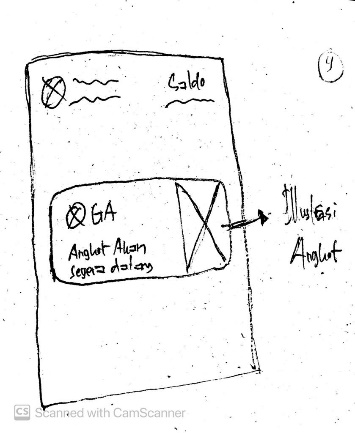 4
Saldo
GA
Angkot Akan
segera datang
Illustrasi
Angkot
CS Scanned with CamScanner